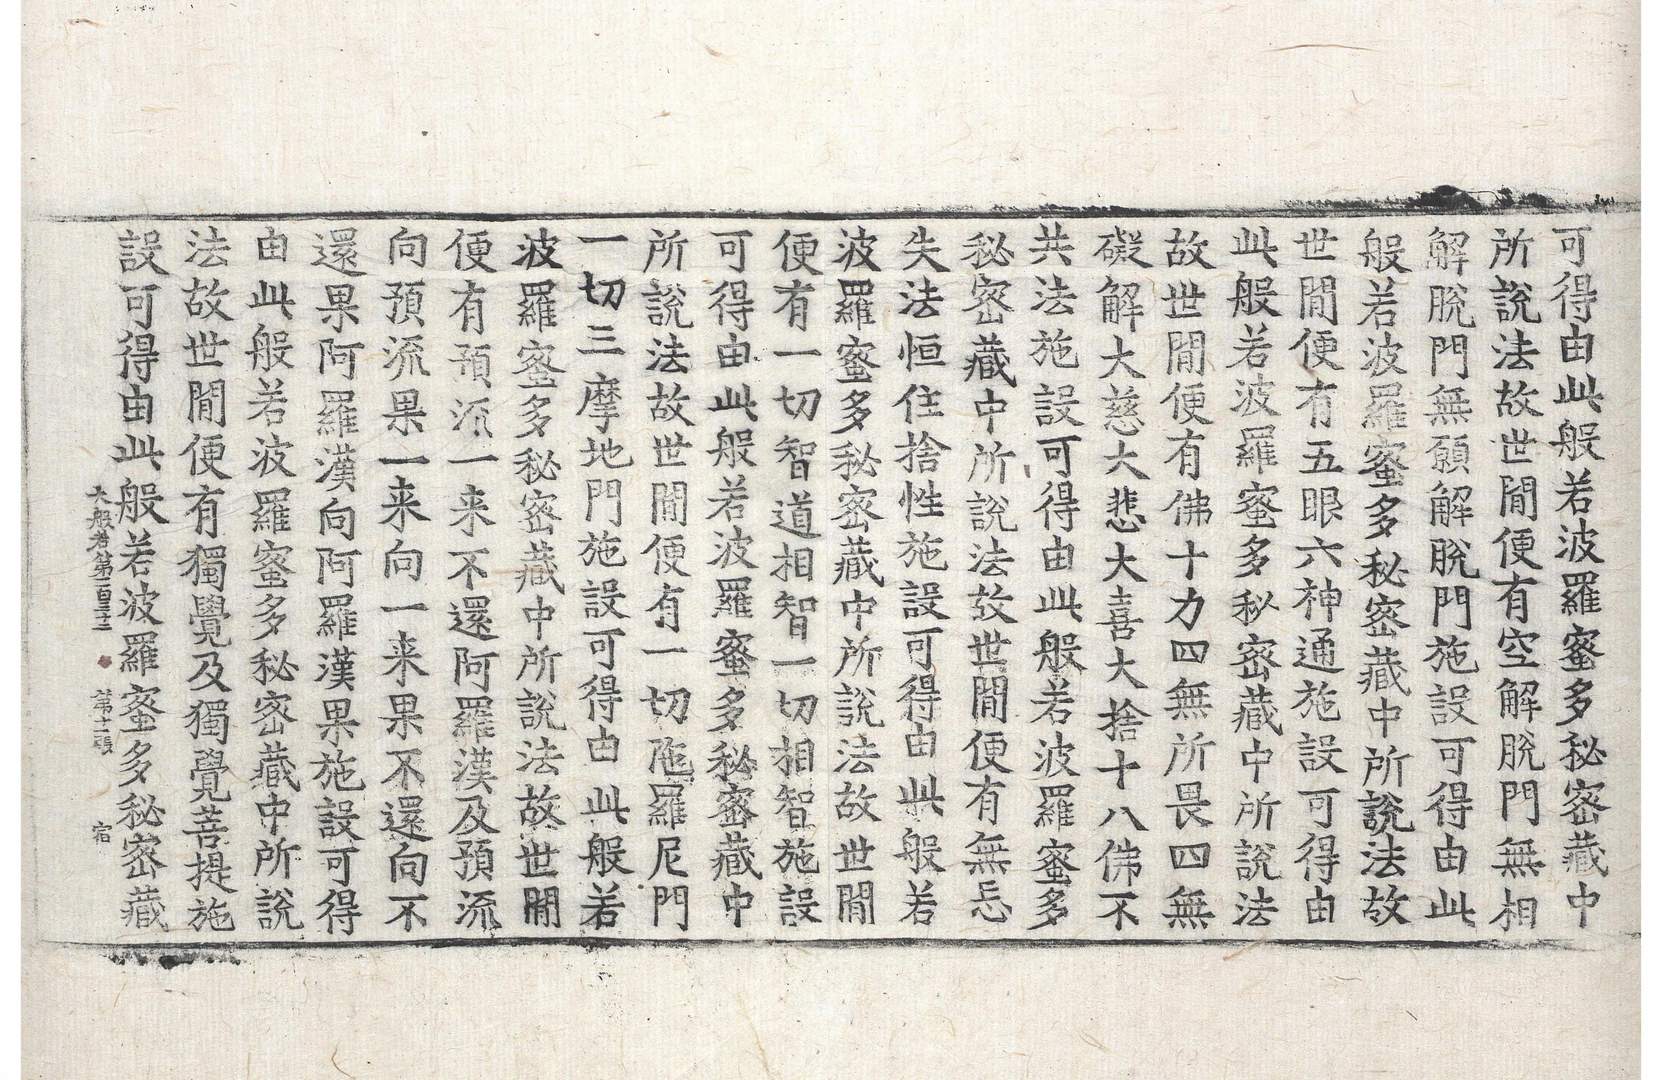 可得由此般若波羅蜜多秘密藏中
所說法故世間便有空解脫門無相
解脫門無願解脫門施設可得由此
般若波羅蜜多秘密藏中所說法故
世間便有五眼六神通施設可得由
此般若波羅蜜多秘密藏中所說法
故世間便有佛十力四無所畏四無
礙解大慈大悲大喜大捨十八佛不
共法施設可得由此般若波羅蜜多
秘密藏中所說法故世間便有無忘
失法恒住捨性施設可得由此般若
波羅蜜多秘密藏中所說法故世間
便有一切智道相智一切相智施設
可得由此般若波羅蜜多秘密藏中
所說法故世間便有一切陁羅尼門
一切三摩地門施設可得由此般若
波羅蜜多秘密藏中所說法故世間
便有預流一来不還阿羅漢及預流
向預流果一来向一来果不還向不
還果阿羅漢向阿羅漢果施設可得
由此般若波羅蜜多秘密藏中所說
法故世間便有獨覺及獨覺菩提施
設可得由此般若波羅蜜多秘密藏
大般若第一百三十二 第十二張 宿